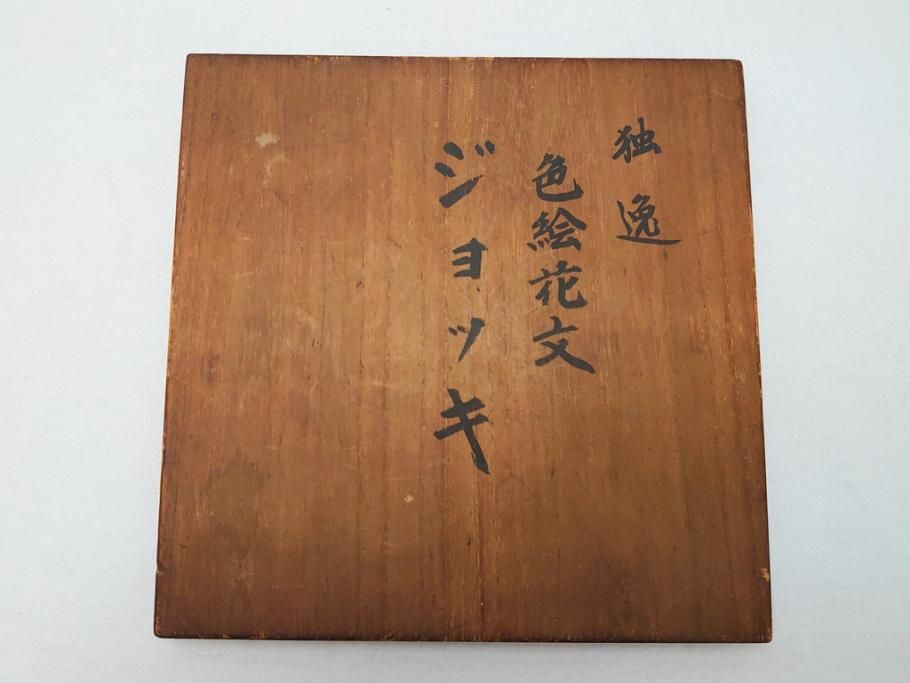 独逸
色絵花文
ジョッキ